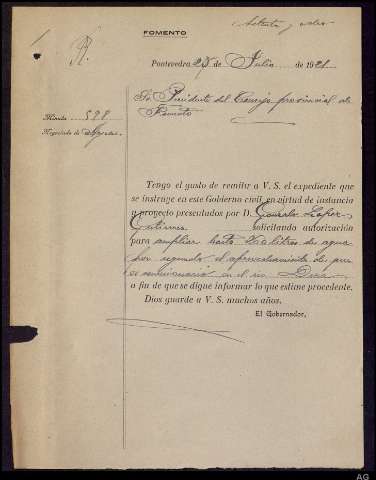 FOMENTO
R.
Pontevedra 25 de Julio de 1921
Sr. Presidente del Consejo provincial de
Fomento
Minuta 598
Negociado de Aguas
Tengo el gusto de remitir a V. S. el expediente que
se instruye en este Gobierno civil en virtud de instancia
y proyecto presentados por D. Gonzalo López
solicitando autorización
para ampliar hasta litros de agua
por segundo el aprovechamiento de que
es concesionario en el río Deza
a fin de que se digne informar lo que estime procedente.
Dios guarde a V. S. muchos años.
El Gobernador,
AG